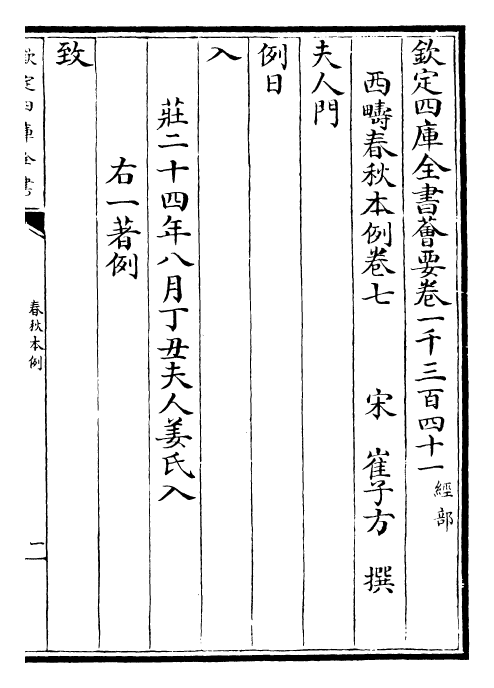 欽定四庫全書薈要卷一千三百四十一 經部
西疇春秋本例卷七 宋 崔子方 撰
夫人門
例日
入
莊二十四年八月丁丑夫人姜氏入
右一著例
致
欽定四庫全書
春秋本例
二